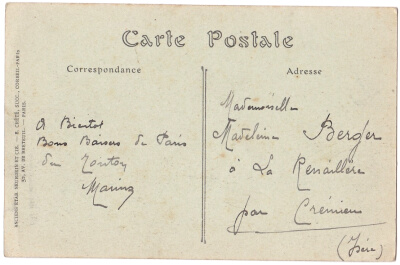 Carte Postale
Correspondance
Adresse
A Bientot
Bons Baisers de Paris
de Tonton
Mademoiselle
Madeleine Berger
à La
par Crémieu
(Isère)